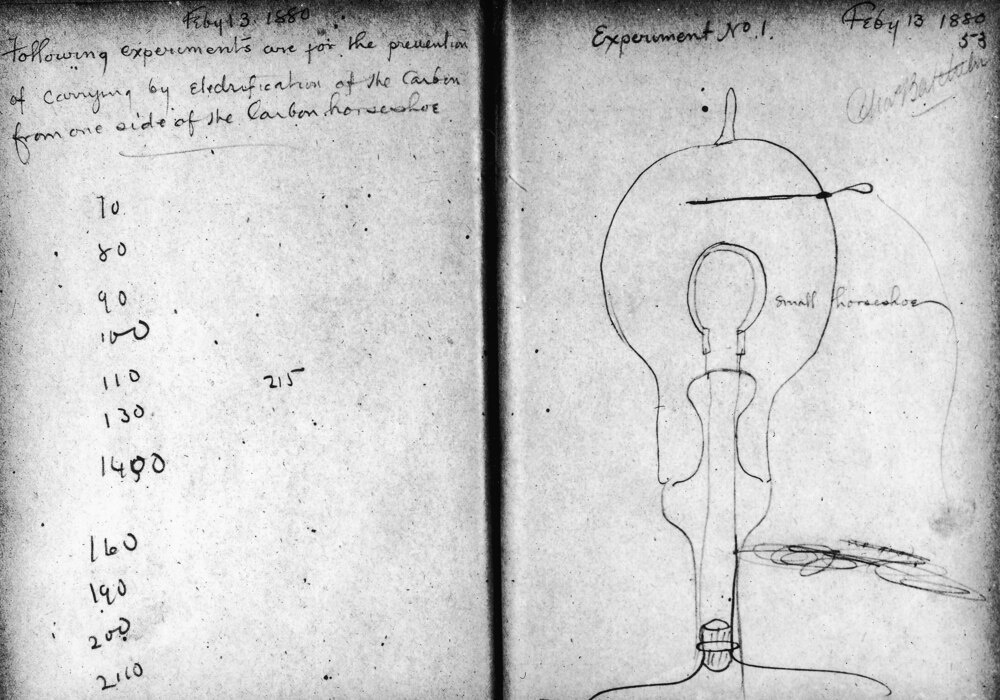 Feby 13 1880
Following experiments are for the prevention
of carrying by electrification of the Carbon
from one side of the Carbon horseshoe
70
80
90
100
110 215
130
160
190
200
Experiment No. 1.
Feby 13 1880
53
small horseshoe